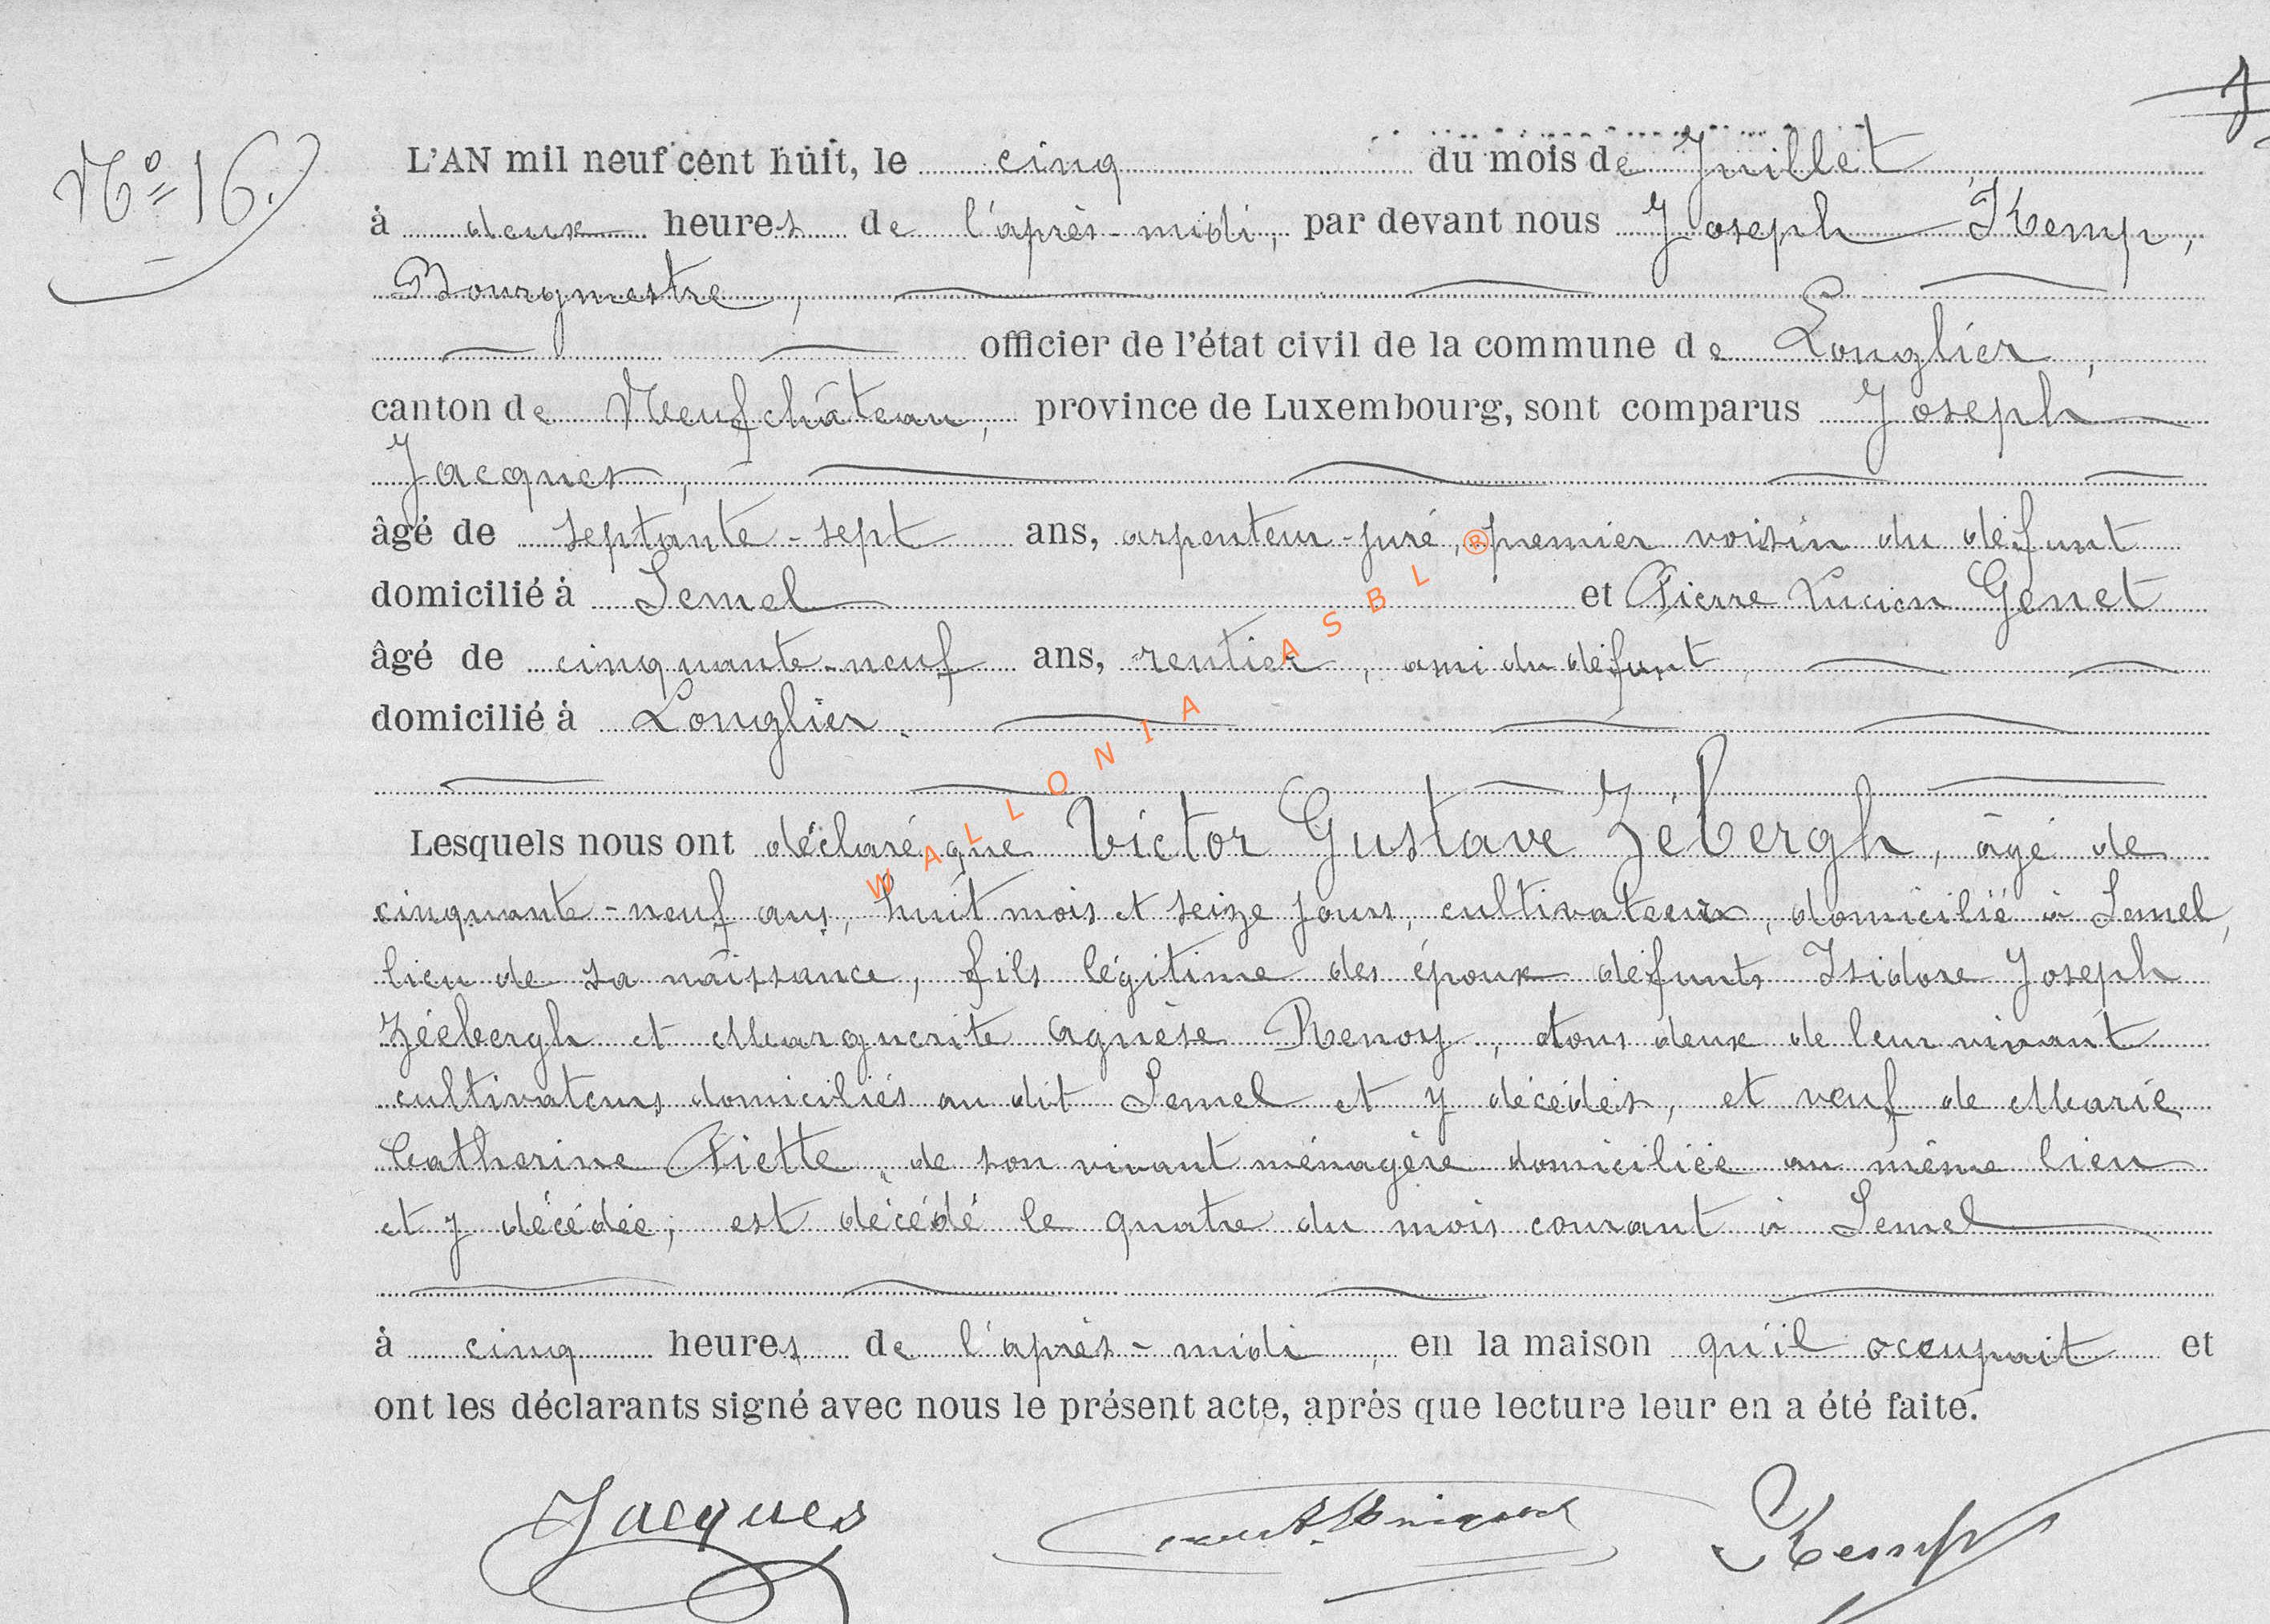 Nº 16.
L'AN mil neuf cent huit, le cinq du mois de Juillet,
à deux heures de l'après-midi, par devant nous Joseph Kemp,
Bourgmestre,
officier de l'état civil de la commune de Longlier,
canton de Neufchâteau, province de Luxembourg, sont comparus Joseph
Jacques,
âgé de septante-sept ans, arpenteur-juré, premier voisin du défunt
domicilié à Semel et Pierre Lucien Genet
âgé de cinquante-neuf ans, rentier, ami du défunt,
domicilié à Longlier.
WALLONIA ASBL ®
Lesquels nous ont déclaré que Victor Gustave Zébergh, âgé de
cinquante-neuf ans, huit mois et seize jours, cultivateur, domicilié à Semel,
lieu de sa naissance, fils légitime des époux défunts Isidore Joseph
Zéebergh et Marguerite Agnèse Renoy, tous deux de leur vivant
cultivateurs domiciliés au dit Semel et y décédés, et veuf de Marie
Catherine Fiette, de son vivant ménagère domiciliée au même lieu
et y décédée, est décédé le quatre du mois courant à Semel
à cinq heures de l'après-midi, en la maison qu'il occupait et
ont les déclarants signé avec nous le présent acte, après que lecture leur en a été faite.
Jacques Kemp